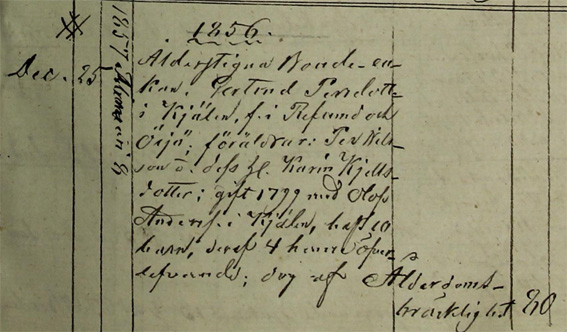 1856.
Dec. 25
1857 Januari 8
Ålderstigna Bonde-en-
kan, Gertrud Persdott-
i Kjälen, f. i Refsund och
Ösjö; föräldrar: Per Nils-
son o. dess h. Karin Kjells-
dotter; gift 1799 med Olof
Anders- i Kjälen, haft 10
barn, deraf 4 henne öfver-
lefvande; dog af Ålderdoms-
bräcklighet 80